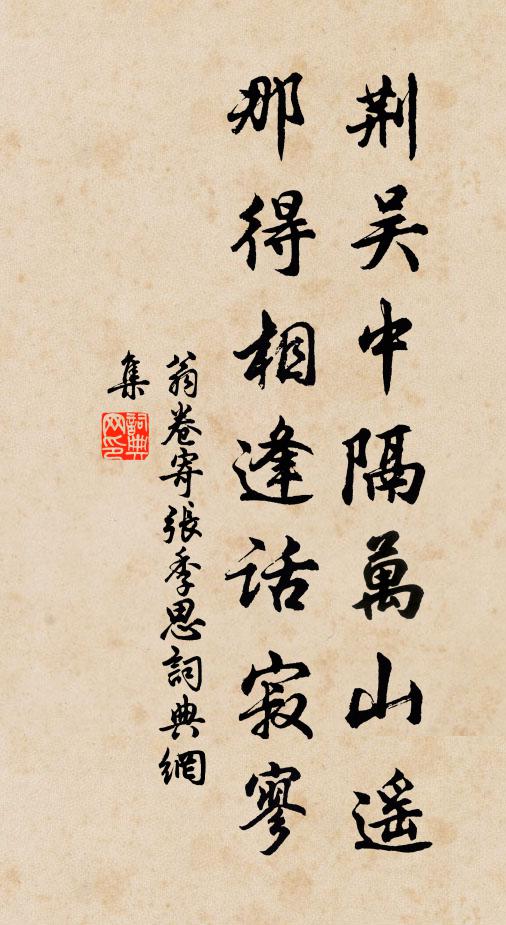 荆吴中隔萬山遥
那得相逢話寂寥
翁卷寄張季思詞典網
集
詞典网印